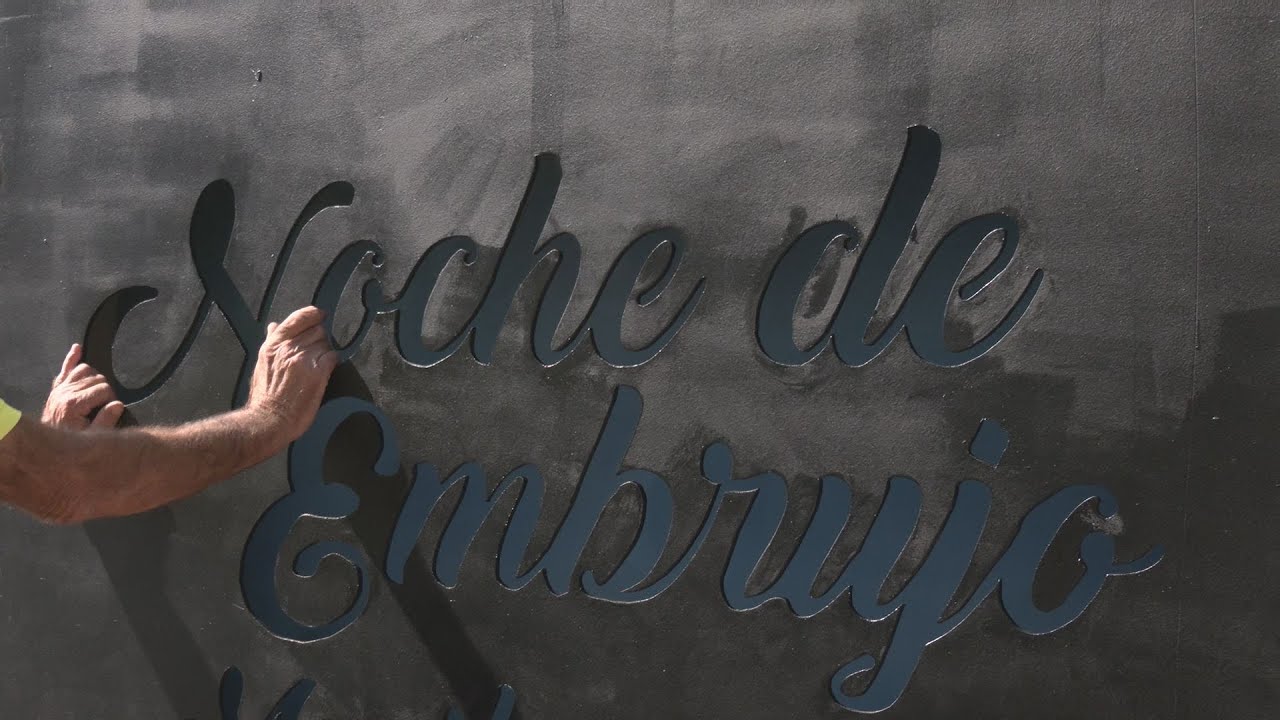 Noche de
Embrujo